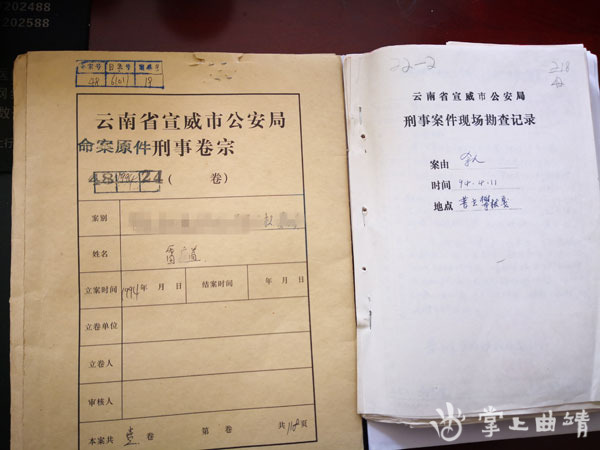 202588
全宗号 目录号 案卷号
48 19
云南省宣威市公安局
命案原件刑事卷宗
48 24 ( 卷)
案别
姓名
立案时间 1994年 月 日 结案时间 年 月 日
立卷单位
立卷人
审核人
本案共 壹 卷 第 卷 共 页
22-2
云南省宣威市公安局
刑事案件现场勘查记录
案由 杀人
时间 94.4.11
地点
掌上曲靖